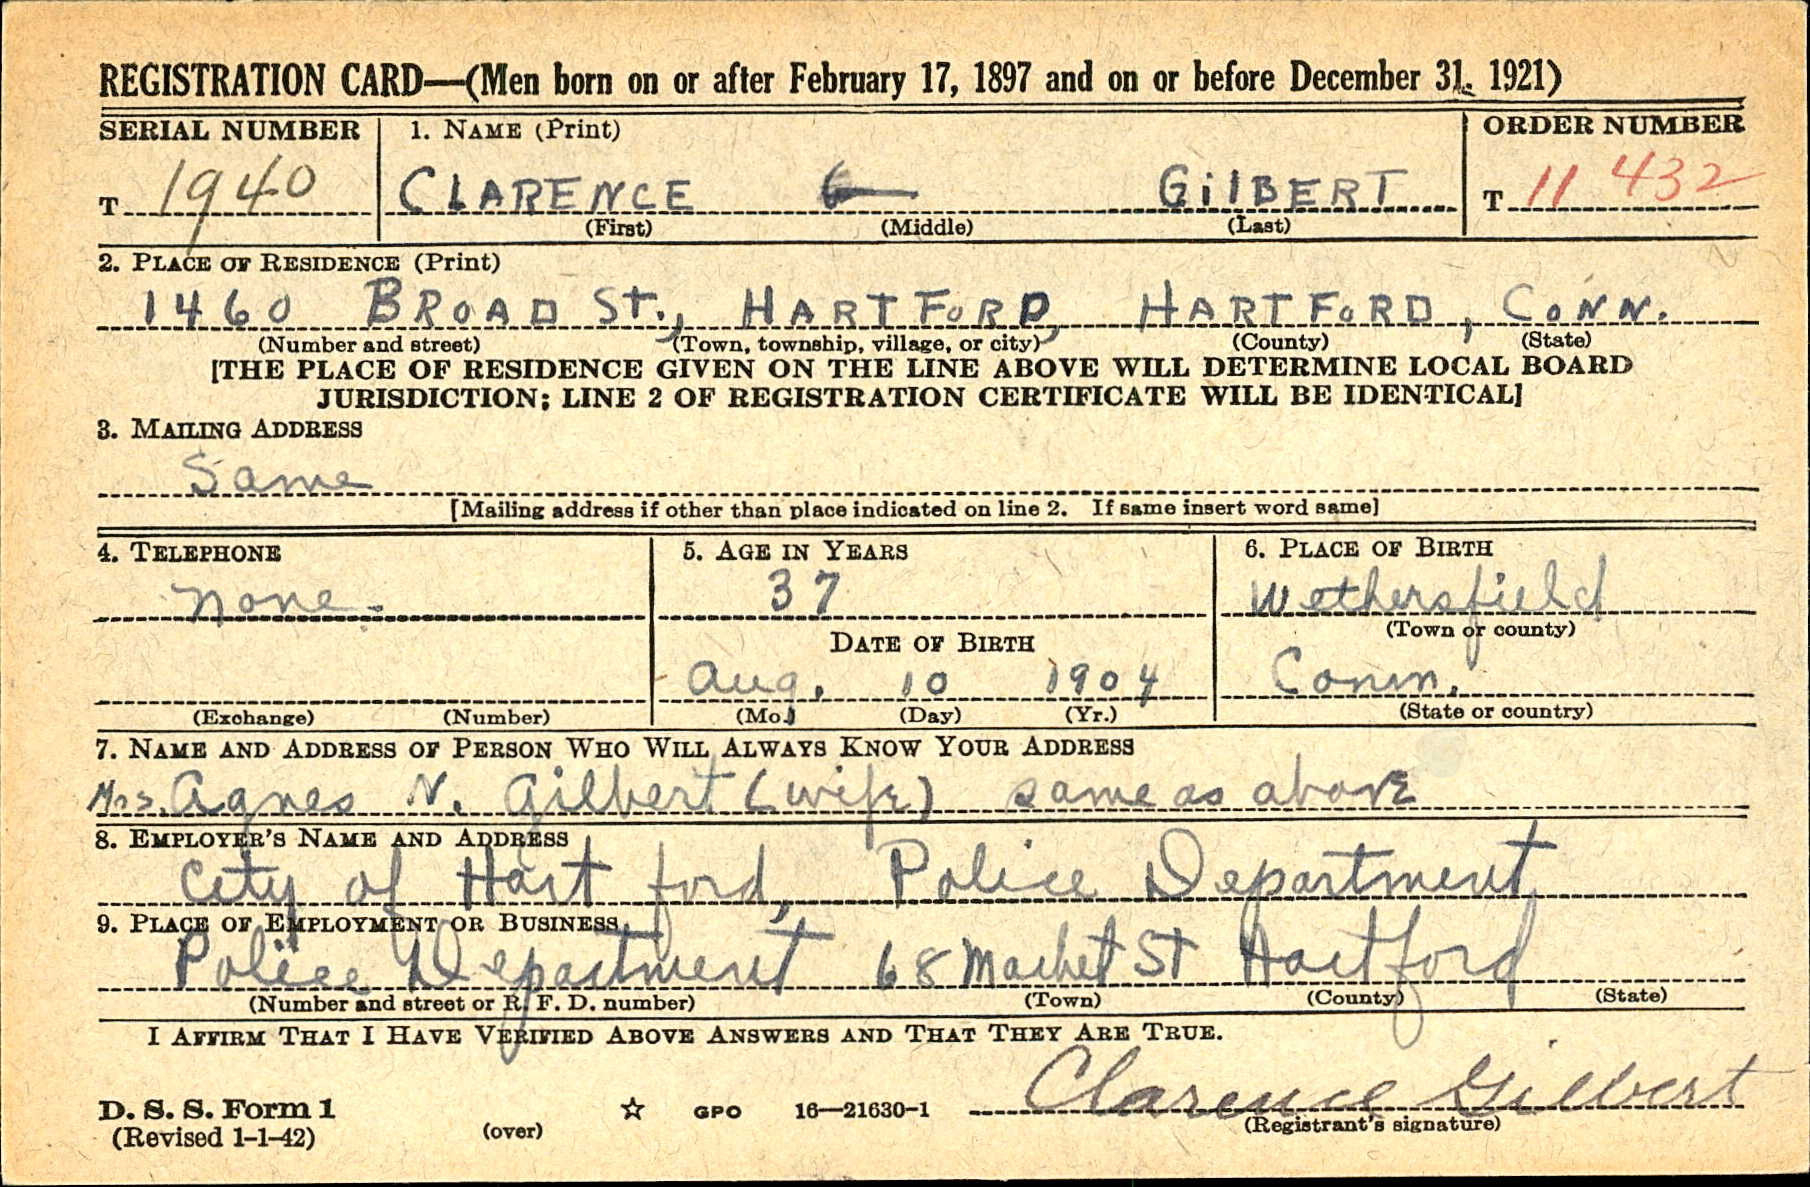 REGISTRATION CARD—(Men born on or after February 17, 1897 and on or before December 31, 1921)
SERIAL NUMBER 1. NAME (Print) ORDER NUMBER
T 1940 CLARENCE GILBERT T 11432
(First) (Middle) (Last)
2. PLACE OF RESIDENCE (Print)
1460 BROAD St., HARTFORD, HARTFORD, CONN.
(Number and street) (Town, township, village, or city) (County) (State)
[THE PLACE OF RESIDENCE GIVEN ON THE LINE ABOVE WILL DETERMINE LOCAL BOARD
JURISDICTION; LINE 2 OF REGISTRATION CERTIFICATE WILL BE IDENTICAL]
3. MAILING ADDRESS
Same
[Mailing address if other than place indicated on line 2. If same insert word same]
4. TELEPHONE 5. AGE IN YEARS 6. PLACE OF BIRTH
none. 37 Wethersfield
DATE OF BIRTH (Town or county)
Aug. 10 1904 Conn.
(Exchange) (Number) (Mo.) (Day) (Yr.) (State or country)
7. NAME AND ADDRESS OF PERSON WHO WILL ALWAYS KNOW YOUR ADDRESS
Mrs. Agnes N. Gilbert (wife) same as above
8. EMPLOYER'S NAME AND ADDRESS
City of Hartford, Police Department
9. PLACE OF EMPLOYMENT OR BUSINESS
Police Department 68 Market St Hartford
(Number and street or R. F. D. number) (Town) (County) (State)
I AFFIRM THAT I HAVE VERIFIED ABOVE ANSWERS AND THAT THEY ARE TRUE.
Clarence Gilbert
D. S. S. Form 1 ☆ GPO 16—21630-1 (Registrant's signature)
(Revised 1-1-42) (over)